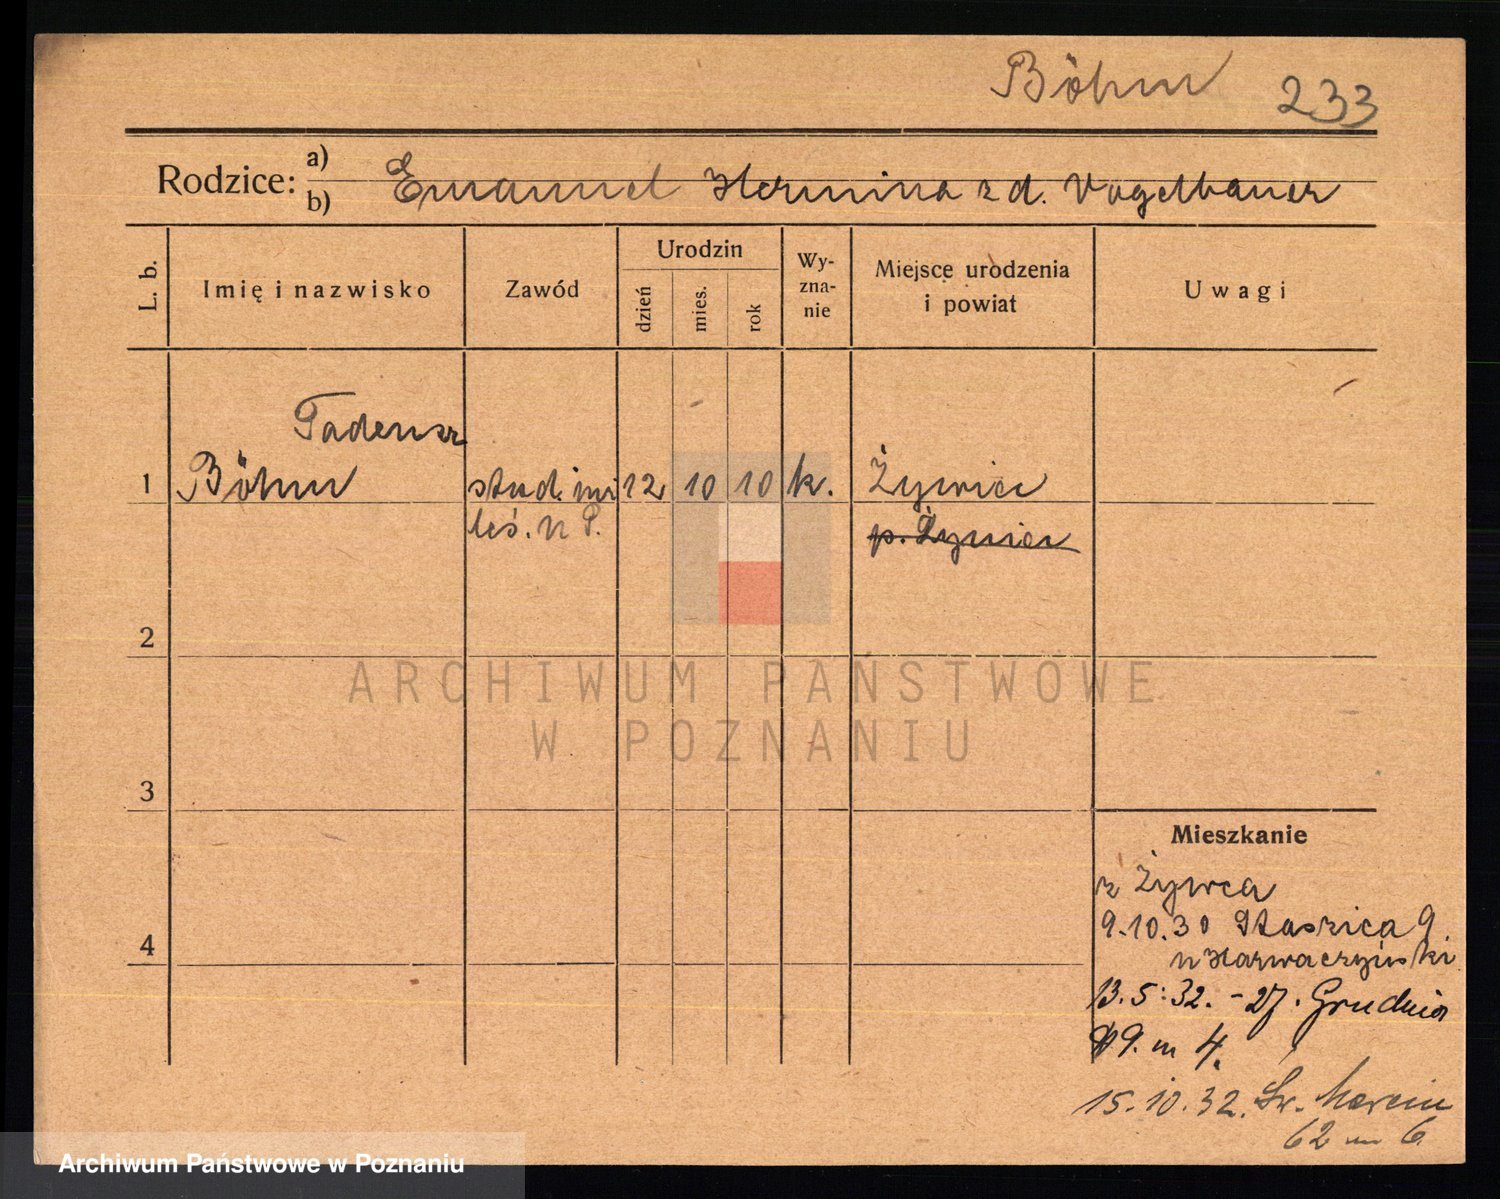 Böhm 233
Rodzice: a) b) Emanuel Hermina z d. Vogelbauer
L. b.
Imię i nazwisko
Zawód
Urodzin
dzień
mies.
rok
Wy-
zna-
nie
Miejsce urodzenia
i powiat
Uwagi
Tadeusz
1 Böhm stud. 12 10 10 k. Żywiec
leś. P.
p. Żywiec
2
3
4
Mieszkanie
z Żywca
9.10.30 Staszica 9
13.5.32. - 27. Grudnia
9. m 4.
15.10.32. Św. Marcin
62 m 6
ARCHIWUM PAŃSTWOWE
W POZNANIU
Archiwum Państwowe w Poznaniu